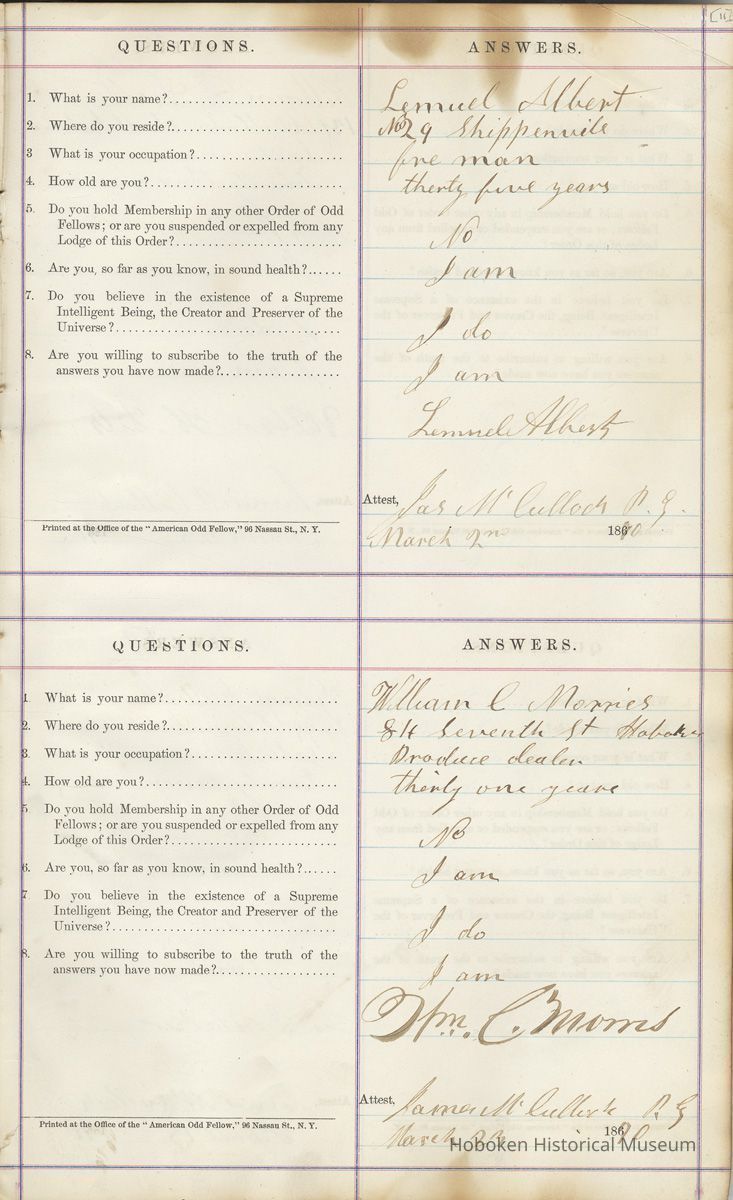 [11]
QUESTIONS.
ANSWERS.
1. What is your name?
Lemuel Albert
2. Where do you reside?
No 29 Shippenvile
3 What is your occupation?
fire man
4. How old are you?
thirty five years
5. Do you hold Membership in any other Order of Odd
Fellows; or are you suspended or expelled from any
Lodge of this Order?
No
6. Are you, so far as you know, in sound health?
I am
7. Do you believe in the existence of a Supreme
Intelligent Being, the Creator and Preserver of the
Universe?
I do
8. Are you willing to subscribe to the truth of the
answers you have now made?
I am
Lemuel Albert
Attest, Jas McCulloch P. G.
Printed at the Office of the "American Odd Fellow," 96 Nassau St., N. Y.
March 2nd 18
QUESTIONS.
ANSWERS.
1. What is your name?
William C Morries
2. Where do you reside?
84 Seventh St Hoboken
3. What is your occupation?
Produce dealer
4. How old are you?
thirty one years
5. Do you hold Membership in any other Order of Odd
Fellows; or are you suspended or expelled from any
Lodge of this Order?
No
6. Are you, so far as you know, in sound health?
I am
7 Do you believe in the existence of a Supreme
Intelligent Being, the Creator and Preserver of the
Universe?
I do
8. Are you willing to subscribe to the truth of the
answers you have now made?
I am
Wm. C. Morris
Attest, James McCulloch P. G
Printed at the Office of the "American Odd Fellow," 96 Nassau St., N. Y.
March 18
Hoboken Historical Museum